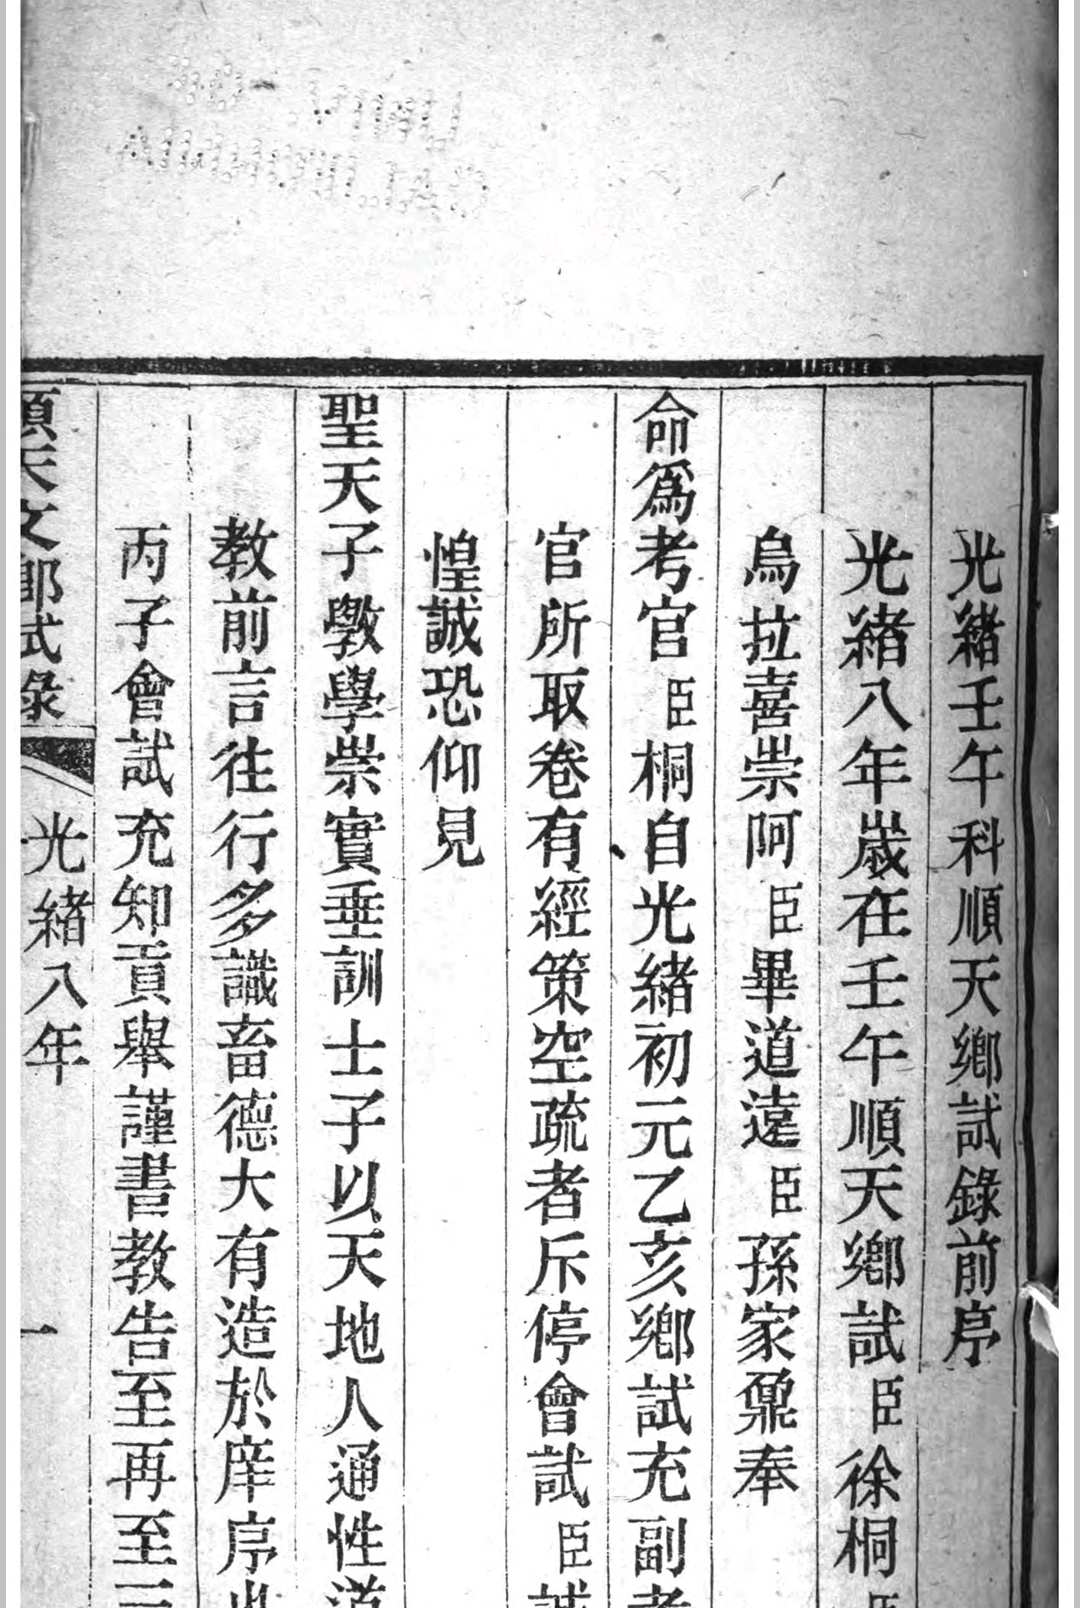 光緒壬午科順天鄉試錄前序
光緒八年歲在壬午順天鄉試臣徐桐臣
烏拉喜崇阿臣畢道遠臣孫家鼐奉
命為考官臣桐自光緒初元乙亥鄉試充副考
官所取卷有經策空疏者斥停會試臣誠
惶誠恐仰見
聖天子斆學崇實垂訓士子以天地人通性道
教前言往行多識畜德大有造於庠序此
丙子會試充知貢舉謹書教告至再至三
順天文鄉試錄
光緒八年
一
UNIV. OF
CALIFORNIA